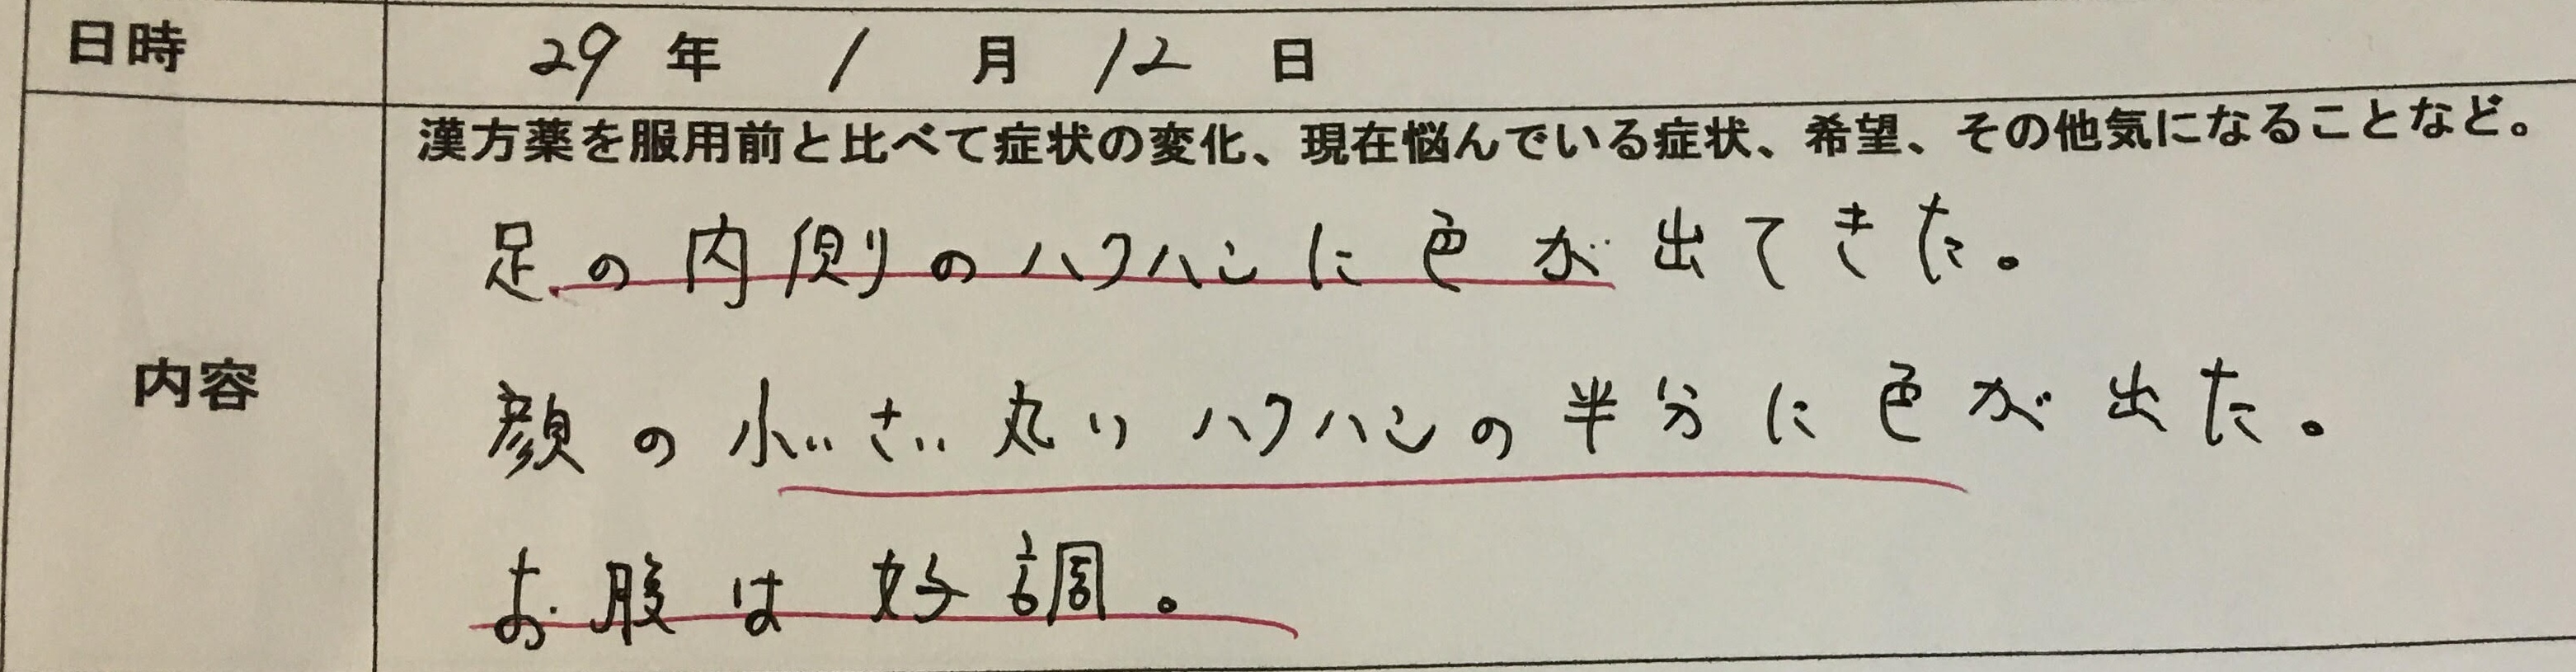 日時 29年 1月 12日
漢方薬を服用前と比べて症状の変化、現在悩んでいる症状、希望、その他気になることなど。
足の内側のハクハンに色が出てきた。
内容
顔の小さい丸いハクハンの半分に色が出た。
お腹は好調。